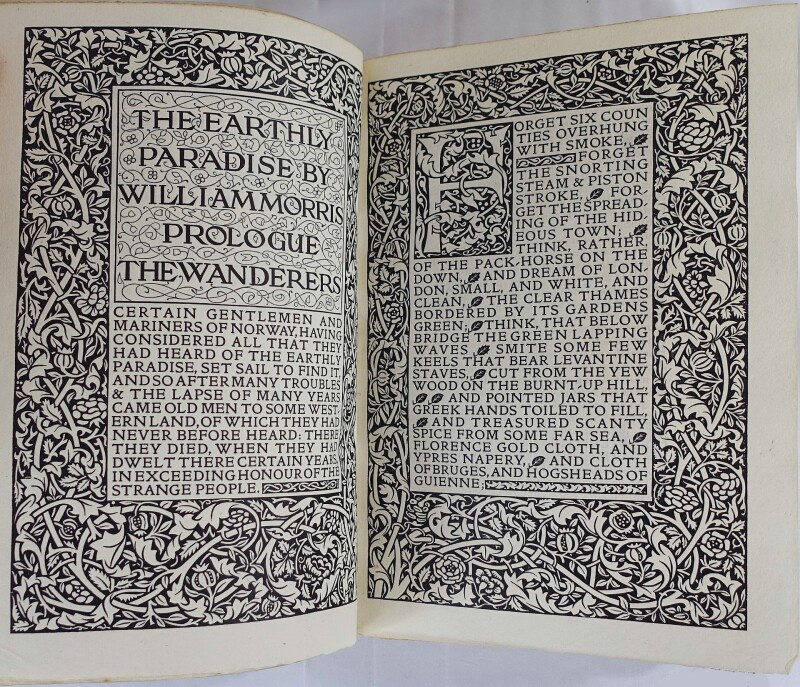 THE EARTHLY
PARADISE BY
WILLIAM MORRIS
PROLOGUE
THE WANDERERS
CERTAIN GENTLEMEN AND
MARINERS OF NORWAY, HAVING
CONSIDERED ALL THAT THEY
HAD HEARD OF THE EARTHLY
PARADISE, SET SAIL TO FIND IT,
AND SO AFTER MANY TROUBLES
& THE LAPSE OF MANY YEARS
CAME OLD MEN TO SOME WEST-
ERN LAND, OF WHICH THEY HAD
NEVER BEFORE HEARD: THERE
THEY DIED, WHEN THEY HAD
DWELT THERE CERTAIN YEARS,
IN EXCEEDING HONOUR OF THE
STRANGE PEOPLE.
FORGET SIX COUN
TIES OVERHUNG
WITH SMOKE,
FORGET
THE SNORTING
STEAM & PISTON
STROKE, FOR-
GET THE SPREAD-
ING OF THE HID-
EOUS TOWN;
THINK, RATHER,
OF THE PACK-HORSE ON THE
DOWN, AND DREAM OF LON-
DON, SMALL, AND WHITE, AND
CLEAN, THE CLEAR THAMES
BORDERED BY ITS GARDENS
GREEN; THINK, THAT BELOW
BRIDGE THE GREEN LAPPING
WAVES SMITE SOME FEW
KEELS THAT BEAR LEVANTINE
STAVES, CUT FROM THE YEW
WOOD ON THE BURNT-UP HILL,
AND POINTED JARS THAT
GREEK HANDS TOILED TO FILL,
AND TREASURED SCANTY
SPICE FROM SOME FAR SEA,
FLORENCE GOLD CLOTH, AND
YPRES NAPERY, AND CLOTH
OF BRUGES, AND HOGSHEADS OF
GUIENNE;